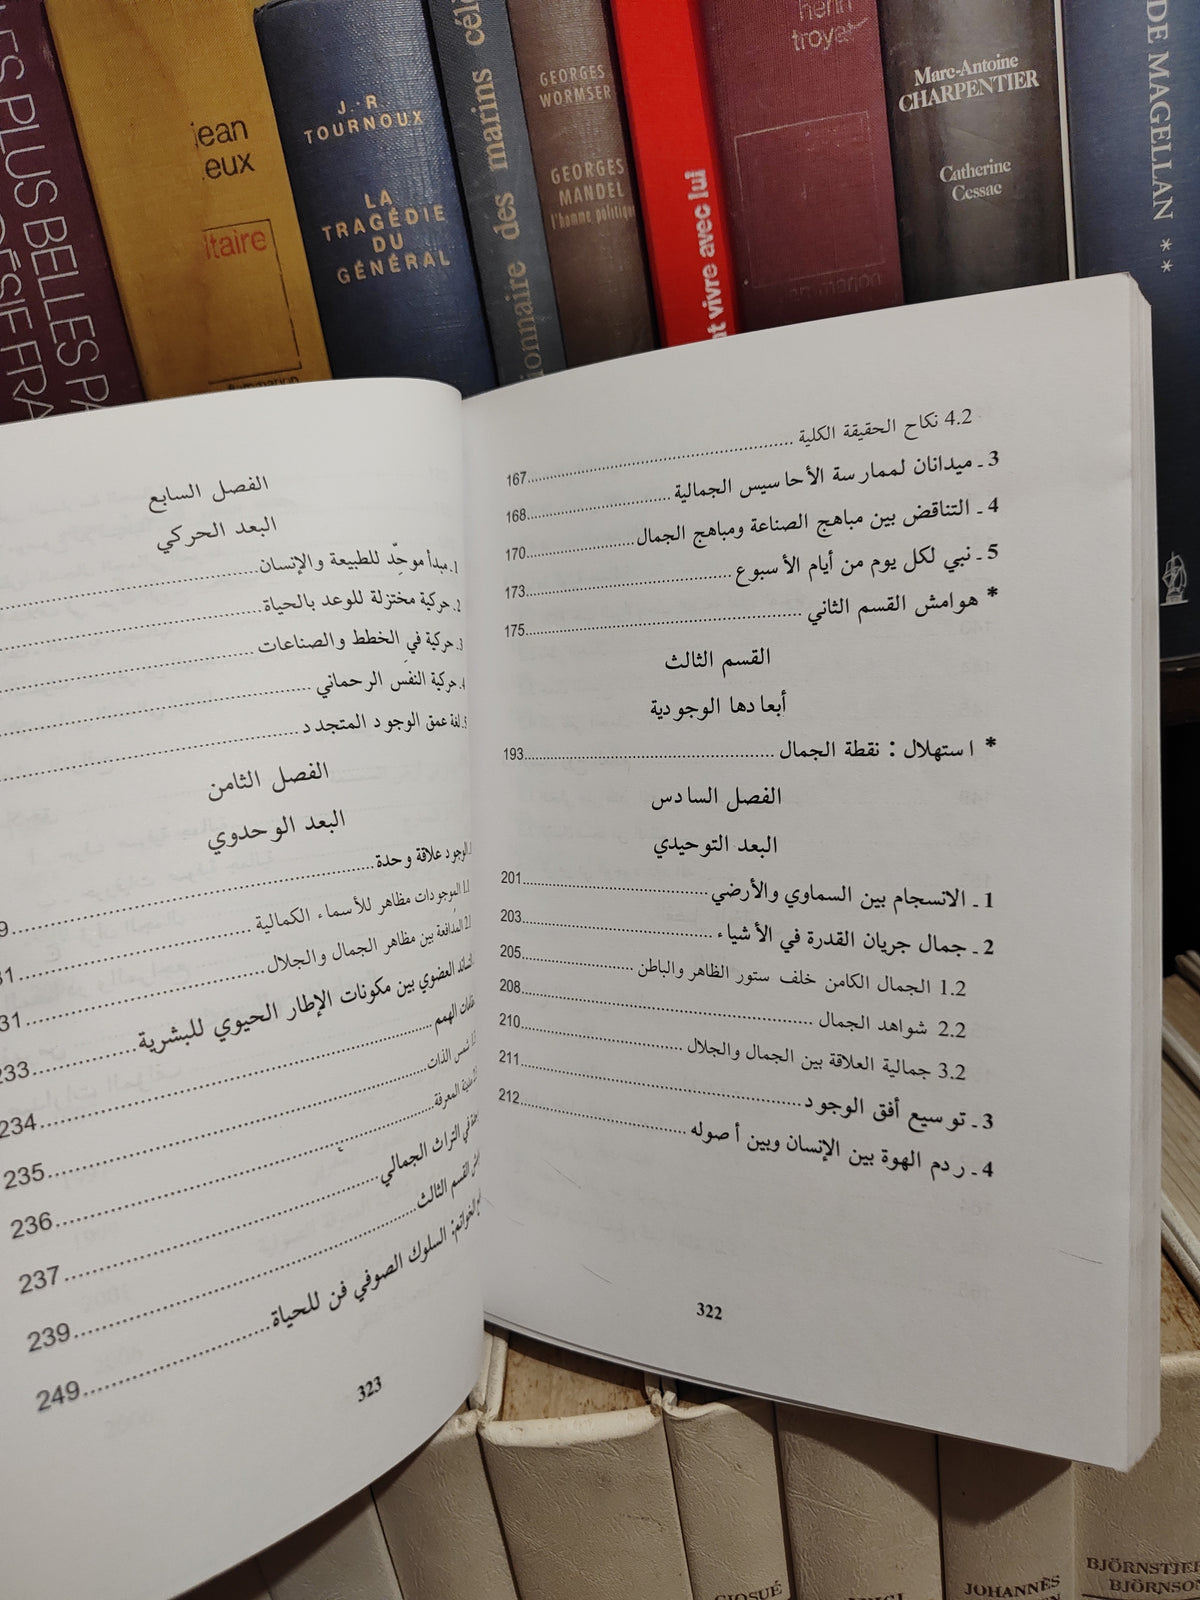 J.-R.
TOURNOUX
LA
TRAGÉDIE
DU
GÉNÉRAL
marins
des
GEORGES
WORMSER
GEORGES
MANDEL
l'homme politique
vivre avec lui
troyat
Marc-Antoine
CHARPENTIER
Catherine
Cessac
DE MAGELLAN **
PLUS BELLES
jean
4.2 نكاح الحقيقة الكلية ........ 167
3 ـ ميدانان لممارسة الأحاسيس الجمالية ........ 168
4 ـ التناقض بين مباهج الصناعة ومباهج الجمال ........ 170
5 ـ نبي لكل يوم من أيام الأسبوع ........ 173
* هوامش القسم الثاني ........ 175
القسم الثالث
أبعادها الوجودية
* استهلال : نقطة الجمال ........ 193
الفصل السادس
البعد التوحيدي
1 ـ الانسجام بين السماوي والأرضي ........ 201
2 ـ جمال جريان القدرة في الأشياء ........ 203
1.2 الجمال الكامن خلف ستور الظاهر والباطن ........ 205
2.2 شواهد الجمال ........ 208
3.2 جمالية العلاقة بين الجمال والجلال ........ 210
3 ـ توسيع أفق الوجود ........ 211
4 ـ ردم الهوة بين الإنسان وبين أصوله ........ 212
322
الفصل السابع
البعد الحركي
1. مبدأ موحِّد للطبيعة والإنسان ........
2. حركية مختزلة للوعد بالحياة ........
3. حركية في الخطط والصناعات ........
4. حركية النفَس الرحماني ........
5. لغة عمق الوجود المتجدد ........
الفصل الثامن
البعد الوحدوي
الوجود علاقة وحدة ........
1.1 الموجودات مظاهر للأسماء الكمالية ........
2.1 المدافعة بين مظاهر الجمال والجلال ........
العضوي بين مكونات الإطار الحيوي للبشرية ........ 233
الهمم ........ 234
شمس الذات ........ 235
المعرفة ........ 236
في التراث الجمالي ........ 237
القسم الثالث ........ 239
السلوك الصوفي فن للحياة ........ 249
323
JOHANNÈS
BJÖRNSON